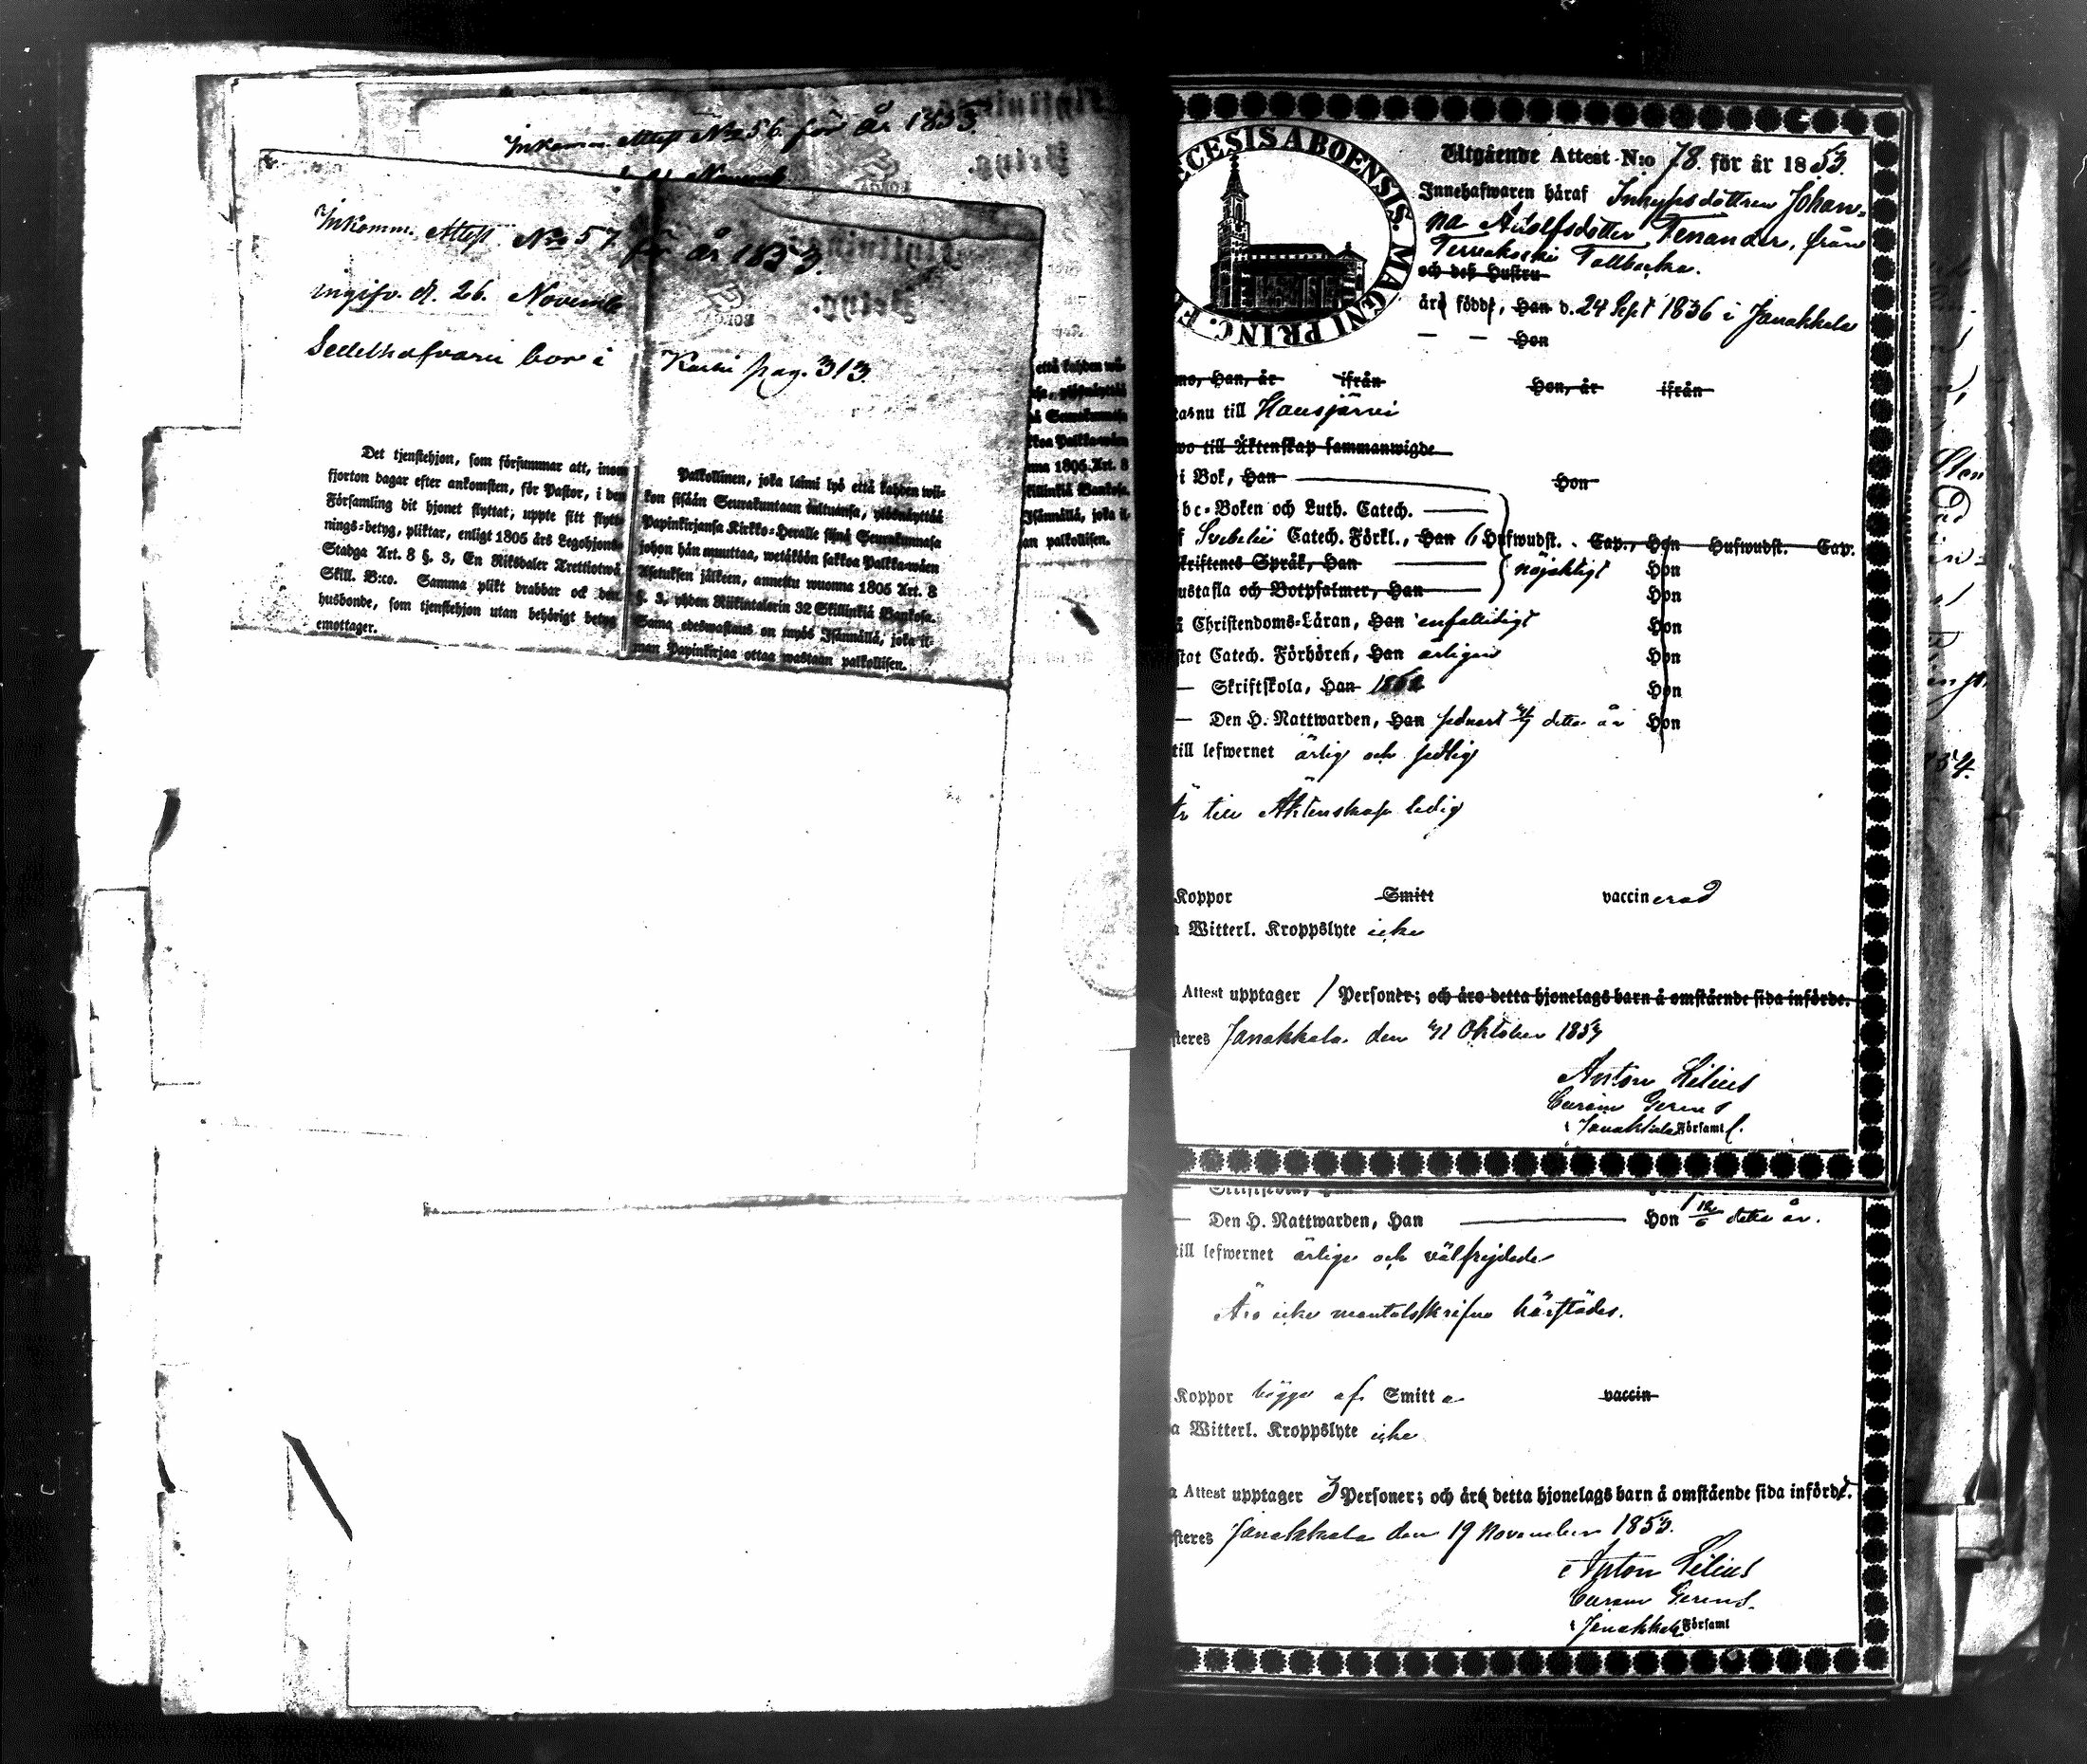 Inkomm. Attest No 56. för år 1853.
Novemb.
Inkomm. Attest No 57 för år 1853.
ingifv. d. 26. Novemb
Sedelhafvaren bor i Karhi pag. 313.
Det tjenstehjon, som försummar att, inom
fjorton dagar efter ankomsten, för Pastor, i den
Församling dit hjonet flyttat, uppte sitt flytt-
nings-betyg, pliktar, enligt 1805 års Legohjons-
Stadga Art. 8 §. 3, En Riksdaler Trettiotwå
Skill. B:co. Samma plikt drabbar ock den
husbonde, som tjenstehjon utan behörigt betyg
emottager.
Palkollinen, joka laimi lyö että kahden wii-
kon sisään Seurakuntaan tultuansa, ylösnäyttää
Papinkirjansa Kirkko-Herralle siinä Seurakunnassa
johon hän muuttaa, wetäköön sakkoa Palkka-wäen
Asetuksen jälkeen, annettu wuonna 1805 Art. 8
§. 3, yhden Riikintalerin 32 Skillinkiä Bankosa.
Sama edeswastaus on myös Isännällä, joka il-
man Papinkirjaa ottaa wastaan palkollisen.
että kahden wii-
ylösnäyttää
Seurakunnassa
Palkka-wäen
1805 Art. 8
Skillinkiä Bankosa.
Isännällä, joka il-
an palkollisen.
CESIS ABOENSIS. MAGNI PRINC. F
Utgående Attest N:o 78. för år 1853.
Innehafwaren häraf Inhysesdottren Johan-
na Adolfsdotter Tenander, från
Tervakoski Tallbacka.
och deß Hustru
äro födde, Han d. 24 Sept 1836 i Janakkala
— — Hon
mo, Han, år ifrån Hon, år ifrån
nu till Hausjärvi
wo till Äktenskap sammanwigde
i Bok, Han Hon
bc-Boken och Luth. Catech.
f Svebelii Catech. Förkl., Han 6 Hufwudst. Cap., Hon Hufwudst. Cap.
skriftenes Språk, Han nöjaktigt Hon
ustafla och Botpsalmer, Han Hon
å Christendoms-Läran, Han enfaldigt Hon
stat Catech. Förhören, Han årligen Hon
— Skriftskola, Han Hon
— Den H. Nattwarden, Han senast detta år Hon
till lefwernet ärlig och sedlig
Är till Äktenskap ledig
Koppor Smitt vaccinerad
a Witterl. Kroppslyte icke
Attest upptager 1 Personer; och äro detta hjonelags barn å omstående sida införde.
steres Janakkala den Oktober 1853
Anton Lilius
Curam Gerens
i Janakkala Församl.
— Den H. Nattwarden, Han Hon detta år.
till lefwernet ärliga och välfrejdade
Äro icke mantalskrifne härstädes.
Koppor bägge af Smitta vaccin
a Witterl. Kroppslyte icke
a Attest upptager 3 Personer; och äro detta hjonelags barn å omstående sida införde.
steres Janakkala den 19 November 1853.
Anton Lilius
Curam Gerens.
i Janakkala Församl